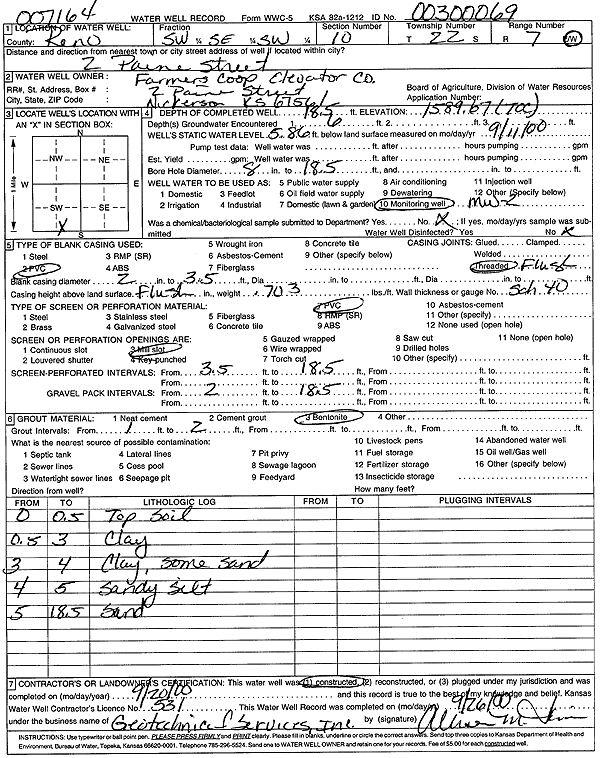 007164 WATER WELL RECORD Form WWC-5 KSA 82a-1212 ID No. 00300069
1 LOCATION OF WATER WELL: Fraction Section Number Township Number Range Number
County: Reno SW ¼ SE ¼ SW ¼ 10 T 22 S R 7 E/W
Distance and direction from nearest town or city street address of well if located within city?
2 Paine Street
2 WATER WELL OWNER: Farmers Coop Elevator Co.
RR#, St. Address, Box # : 2 Paine Street Board of Agriculture, Division of Water Resources
City, State, ZIP Code : Nickerson KS 67561 Application Number:
3 LOCATE WELL'S LOCATION WITH AN "X" IN SECTION BOX:
N
NW NE
W E
SW SE
X
S
1 Mile
4 DEPTH OF COMPLETED WELL 18.5 ft. ELEVATION: 1589.67 (TOC)
Depth(s) Groundwater Encountered 1. 6 ft. 2. ft. 3. ft.
WELL'S STATIC WATER LEVEL 5.86 ft. below land surface measured on mo/day/yr 9/11/00
Pump test data: Well water was ft. after hours pumping gpm
Est. Yield gpm: Well water was ft. after hours pumping gpm
Bore Hole Diameter 8 in. to 18.5 ft., and in. to ft.
WELL WATER TO BE USED AS: 5 Public water supply 8 Air conditioning 11 Injection well
1 Domestic 3 Feedlot 6 Oil field water supply 9 Dewatering 12 Other (Specify below)
2 Irrigation 4 Industrial 7 Domestic (lawn & garden) 10 Monitoring well MW-2
Was a chemical/bacteriological sample submitted to Department? Yes No X ; If yes, mo/day/yrs sample was submitted Water Well Disinfected? Yes No X
5 TYPE OF BLANK CASING USED: 5 Wrought iron 8 Concrete tile CASING JOINTS: Glued Clamped
1 Steel 3 RMP (SR) 6 Asbestos-Cement 9 Other (specify below) Welded
2 PVC 4 ABS 7 Fiberglass Threaded Flush
Blank casing diameter 2 in. to 3.5 ft., Dia in. to ft., Dia in. to ft.
Casing height above land surface Flush in., weight .703 lbs./ft. Wall thickness or gauge No. Sch. 40
TYPE OF SCREEN OR PERFORATION MATERIAL: 7 PVC 10 Asbestos-cement
1 Steel 3 Stainless steel 5 Fiberglass 8 RMP (SR) 11 Other (specify)
2 Brass 4 Galvanized steel 6 Concrete tile 9 ABS 12 None used (open hole)
SCREEN OR PERFORATION OPENINGS ARE: 5 Gauzed wrapped 8 Saw cut 11 None (open hole)
1 Continuous slot 3 Mill slot 6 Wire wrapped 9 Drilled holes
2 Louvered shutter 4 Key punched 7 Torch cut 10 Other (specify) ft.
SCREEN-PERFORATED INTERVALS: From 3.5 ft. to 18.5 ft., From ft. to ft.
From ft. to ft., From ft. to ft.
GRAVEL PACK INTERVALS: From 2 ft. to 18.5 ft., From ft. to ft.
From ft. to ft., From ft. to ft.
6 GROUT MATERIAL: 1 Neat cement 2 Cement grout 3 Bentonite 4 Other
Grout Intervals: From 1 ft. to 2 ft., From ft. to ft., From ft. to ft.
What is the nearest source of possible contamination: 10 Livestock pens 14 Abandoned water well
1 Septic tank 4 Lateral lines 7 Pit privy 11 Fuel storage 15 Oil well/Gas well
2 Sewer lines 5 Cess pool 8 Sewage lagoon 12 Fertilizer storage 16 Other (specify below)
3 Watertight sewer lines 6 Seepage pit 9 Feedyard 13 Insecticide storage
Direction from well? How many feet?
FROM TO LITHOLOGIC LOG FROM TO PLUGGING INTERVALS
0 0.5 Top Soil
0.5 3 Clay
3 4 Clay, some sand
4 5 Sandy Silt
5 18.5 Sand
7 CONTRACTOR'S OR LANDOWNER'S CERTIFICATION: This water well was (1) constructed, (2) reconstructed, or (3) plugged under my jurisdiction and was
completed on (mo/day/year) 9/20/00 and this record is true to the best of my knowledge and belief. Kansas
Water Well Contractor's Licence No. 531 This Water Well Record was completed on (mo/day/yr) 9/26/00
under the business name of Geotechnical Services, Inc. by (signature)
INSTRUCTIONS: Use typewriter or ball point pen. PLEASE PRESS FIRMLY and PRINT clearly. Please fill in blanks, underline or circle the correct answers. Send top three copies to Kansas Department of Health and
Environment, Bureau of Water, Topeka, Kansas 66620-0001. Telephone 785-296-5524. Send one to WATER WELL OWNER and retain one for your records. Fee of $5.00 for each constructed well.